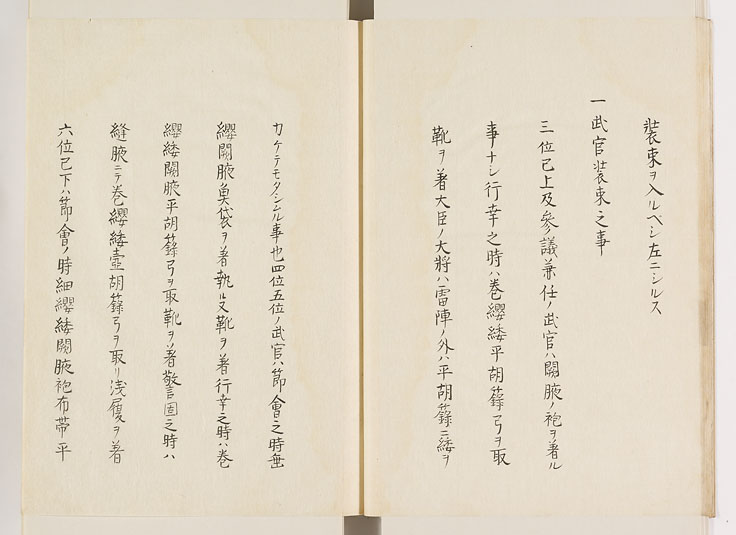 裝束ヲ入ルベシ左ニシルス
一武官裝束之事
三位已上及參議兼任ノ武官ハ闕腋ノ袍ヲ著ル
事ナシ行幸之時ハ巻纓緌平胡籙弓ヲ取
靴ヲ著大臣ノ大將ハ雷陣ノ外ハ平胡籙ニ緌ヲ
カケテモタシムル事也四位五位ノ武官ハ節會之時垂
纓闕腋魚袋ヲ著執笏靴ヲ著行幸之時ハ巻
纓緌闕腋平胡籙弓ヲ取靴ヲ著警固之時ハ
縫腋ニテ巻纓緌壷胡籙弓ヲ取リ浅履ヲ著
六位已下ハ節會ノ時細纓緌闕腋袍布帯平